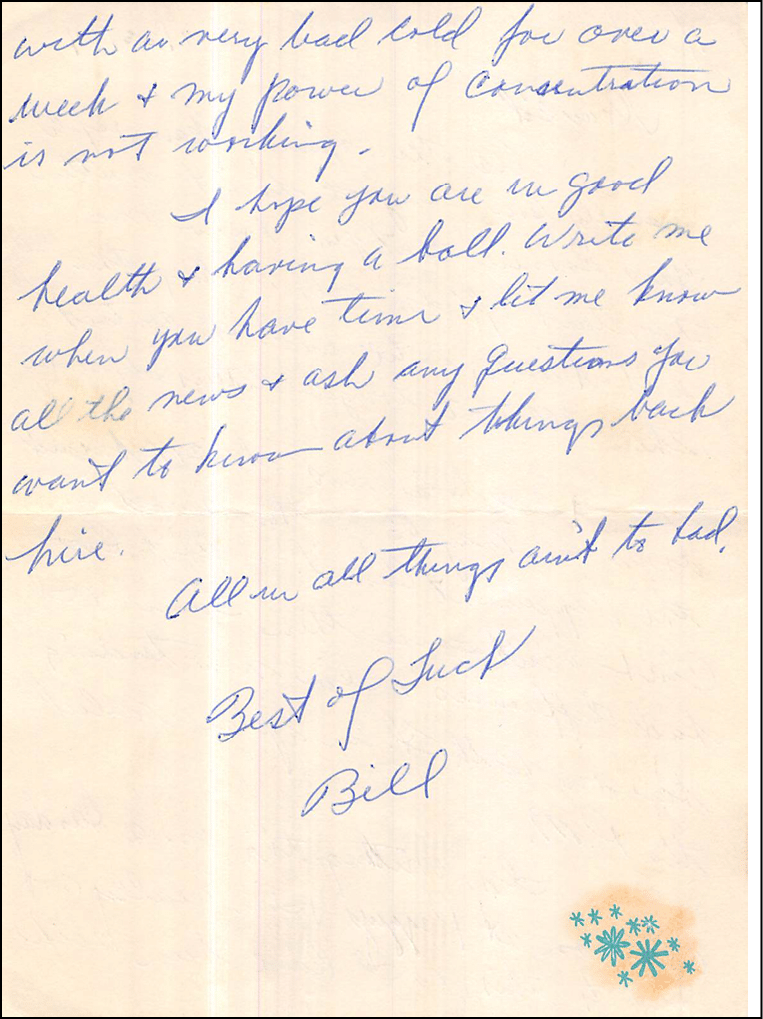 with a very bad cold for over a
week & my power of concentration
is not working.
I hope you are in good
health & having a ball. Write me
when you have time & let me know
all the news & ask any questions you
want to know about things back
here.
All in all things ain't to bad.
Best of Luck
Bill